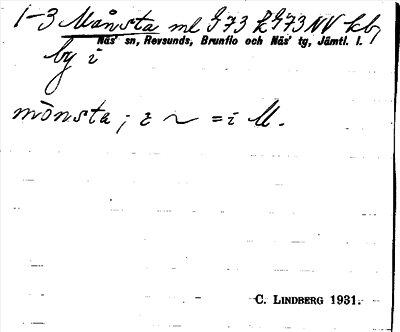 1-3 Månsta ml G73 k G73 NV kby
Näs' sn, Revsunds, Brunflo och Näs' tg, Jämtl. l.
by i
mònsta ; i ~ = i M.
C. LINDBERG 1931.